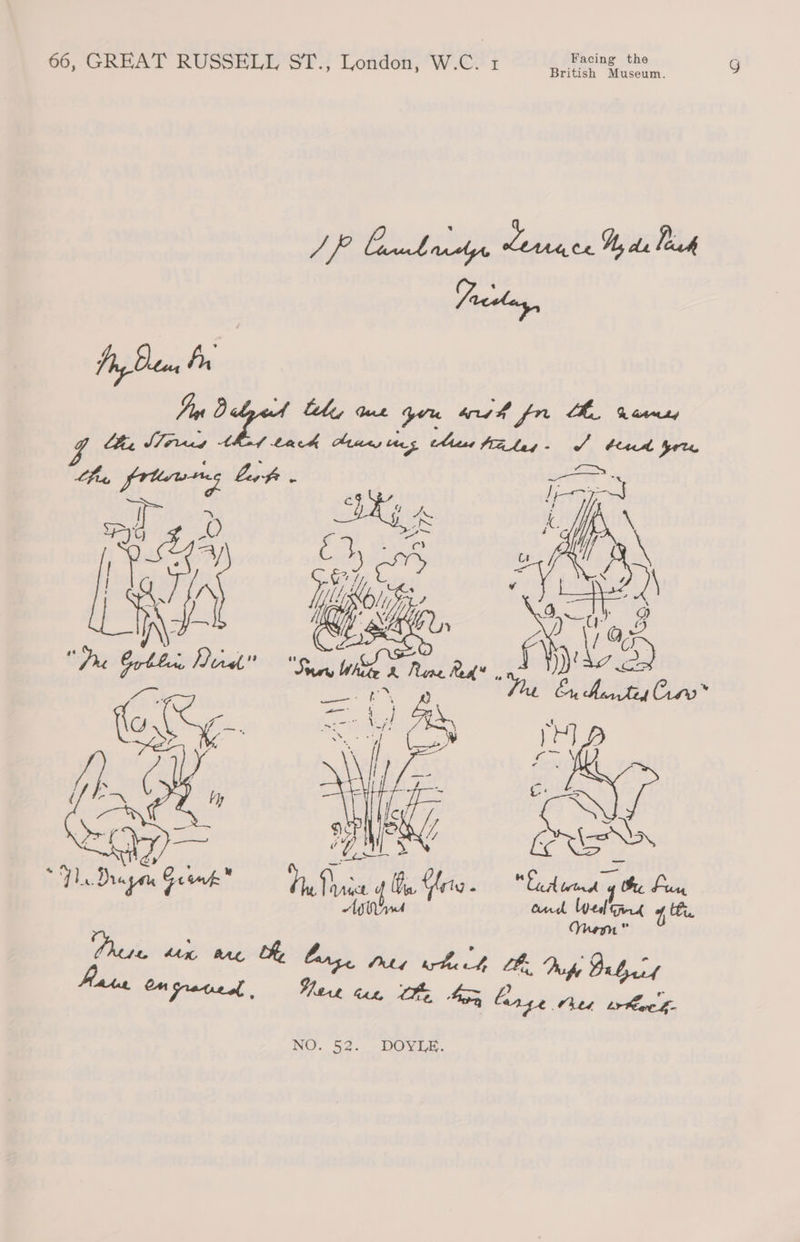 66, GREAT RUSSELL ST., London, W.C. 1
Facing the
British Museum.
9
17 Cambridge Terrace Hyde Park
Friday,
My Dear Sir
Mr Dalziel tells me you wish for the names
of the Stories that each drawing illustrates - I send you
the following list.
"The Goblin
"Snow White & Rose Red"
"The Enchanted Crow"
"The Dragon Giant"
The Prince of the Glow-
worms
"Eudwina of the Sun
and of the
Moon"
These six are the large ones which the Messrs Dalziel
have engraved. Here are the two large ones which-
NO. 52. DOYLE.